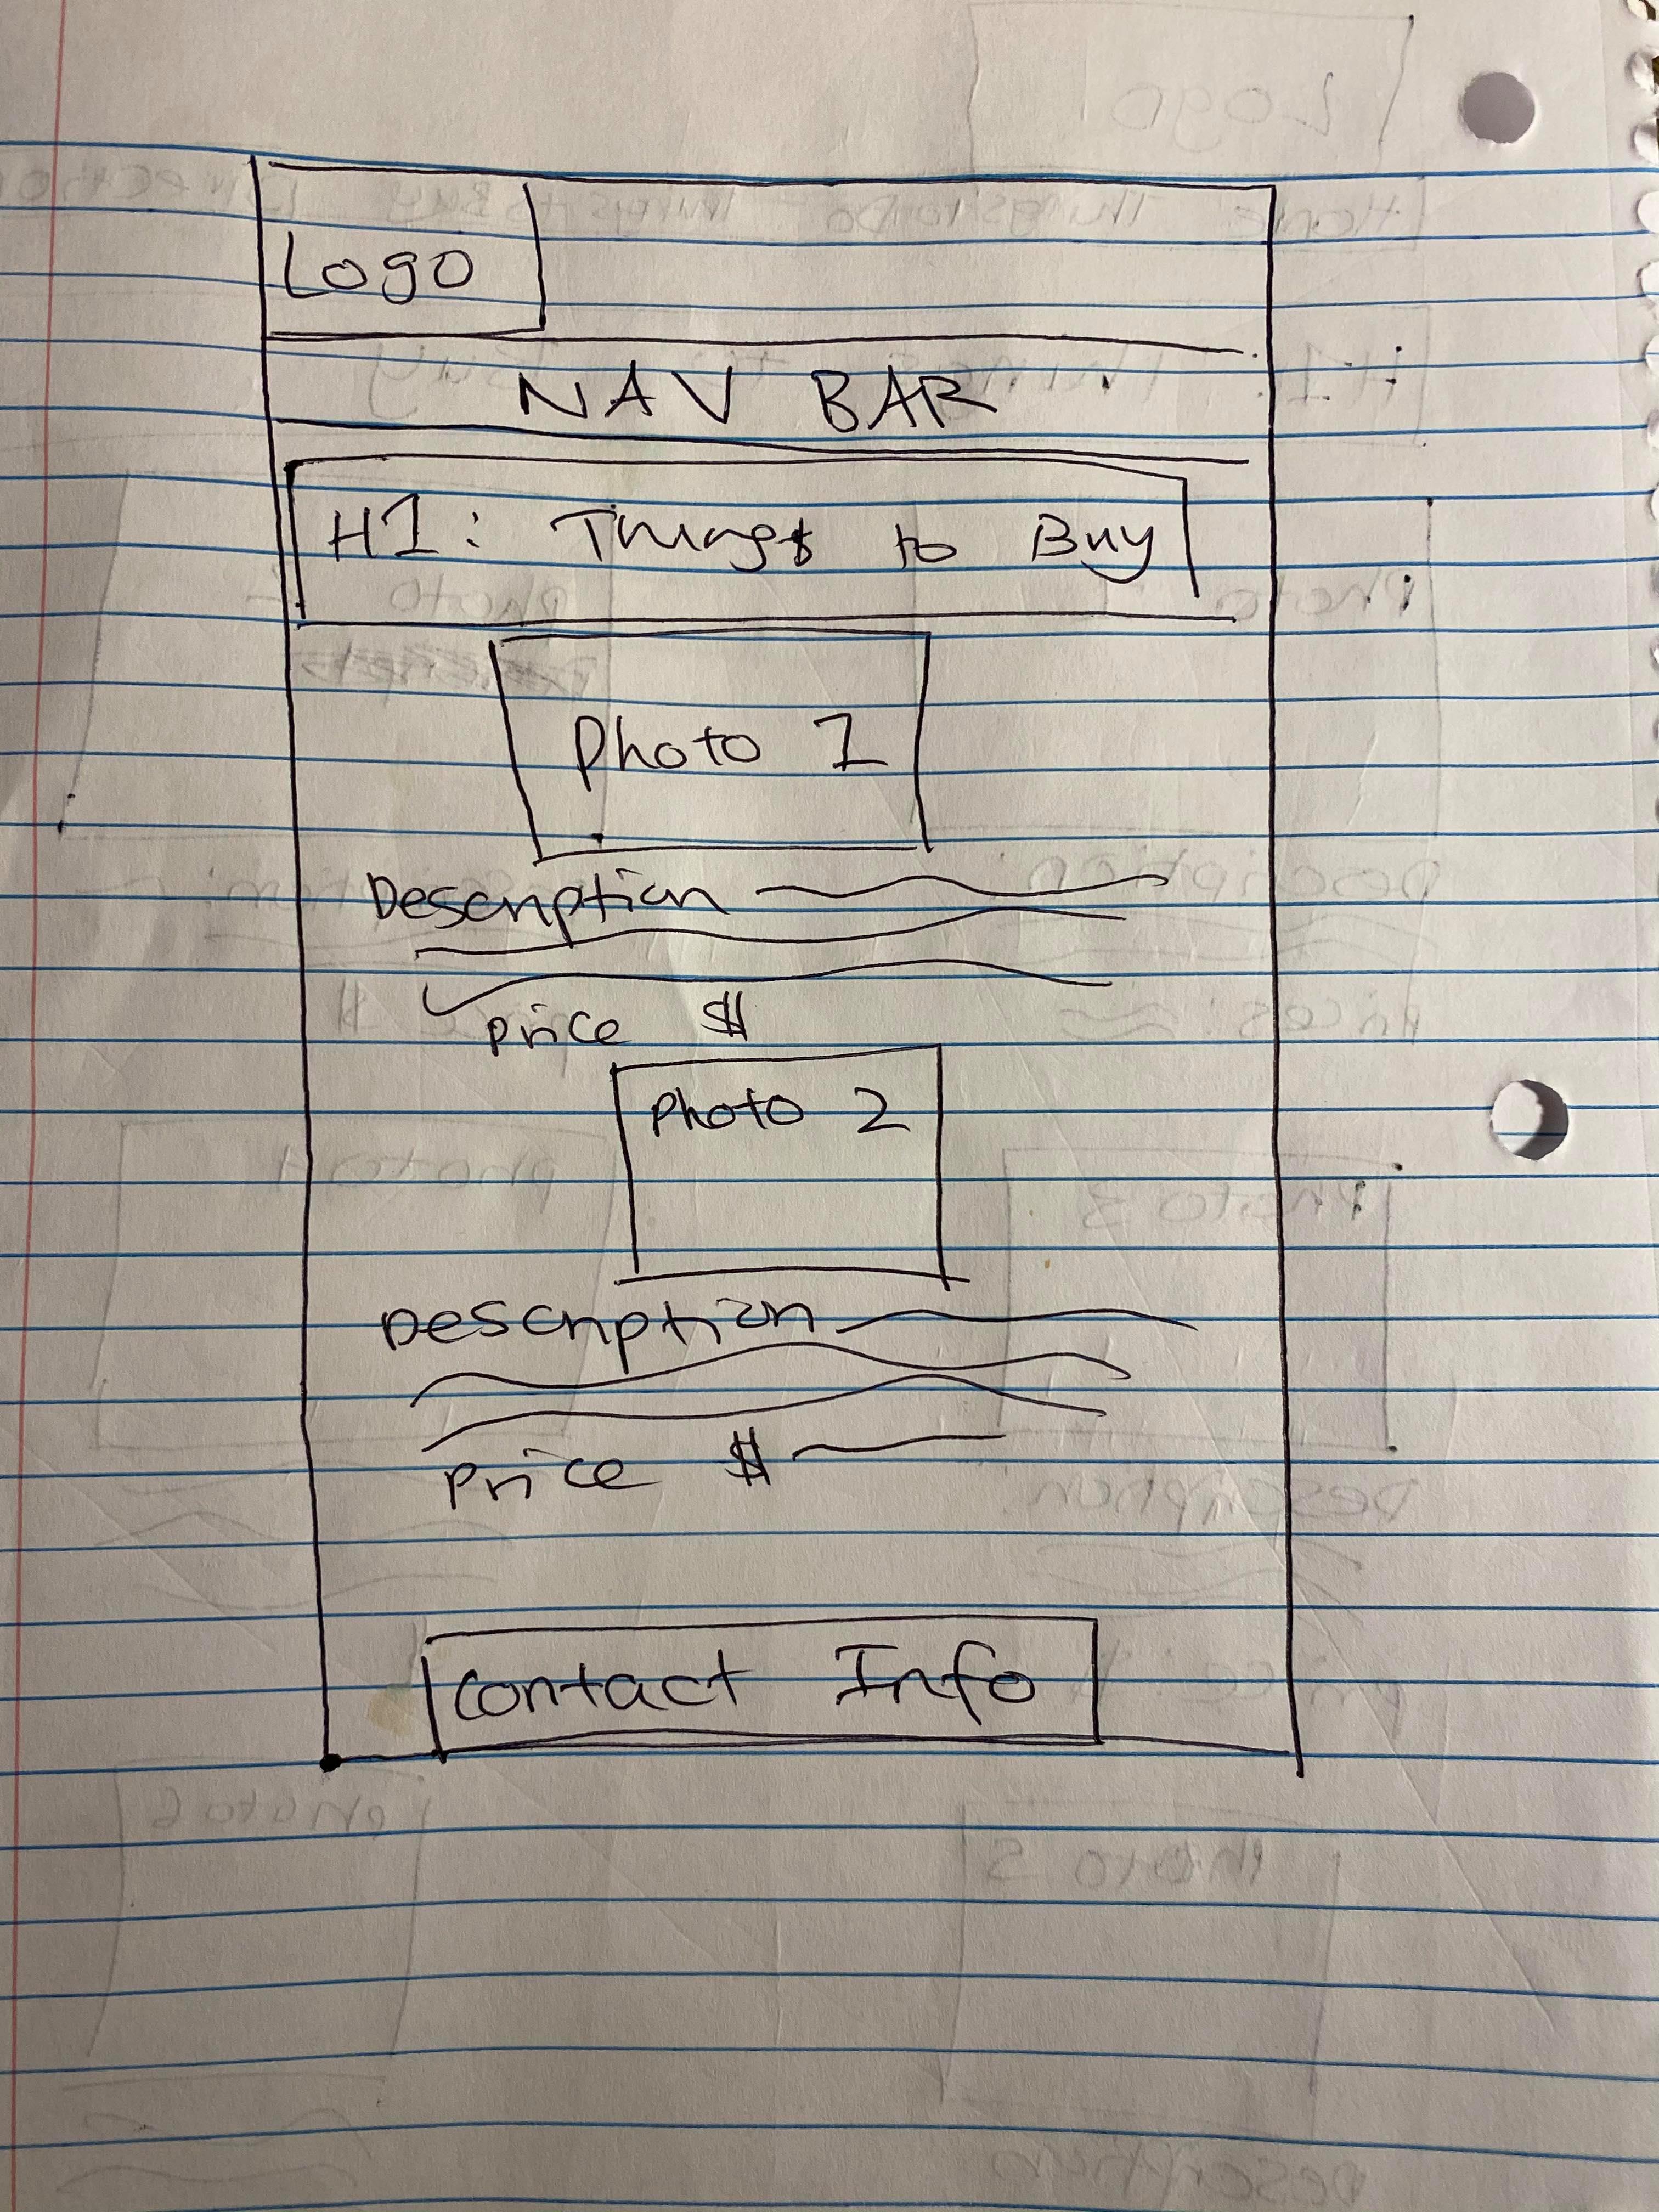 Logo
NAV BAR
H1: Things to Buy
Photo 1
Description
price $
Photo 2
Description
Price $
Contact Info